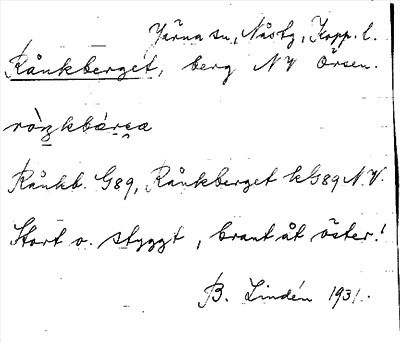 Järna sn, Nåstg, Kopp. l.
Rånkberget, berg NV Örsen.
Rånkb. G89, Rånkberget kG89 N.V.
Stort o. styggt, brant åt öster!
B. Lindén 1931.